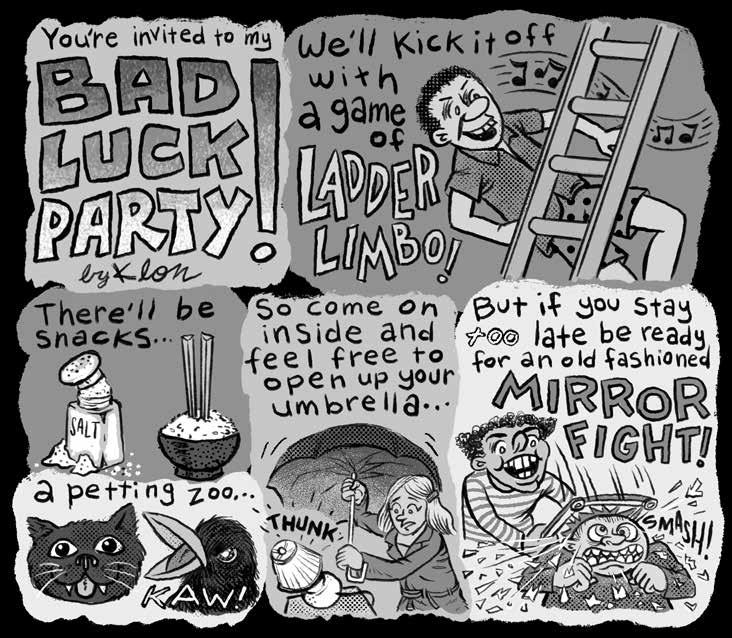 You're invited to my
BAD
LUCK
PARTY!
by Klon
We'll Kick it off
with
a game
of
LADDER
LIMBO!
There'll be
snacks...
SALT
a petting zoo...
KAW!
So come on
inside and
feel free to
open up your
umbrella...
THUNK
But if you stay
too late be ready
for an old fashioned
MIRROR
FIGHT!
SMASH!